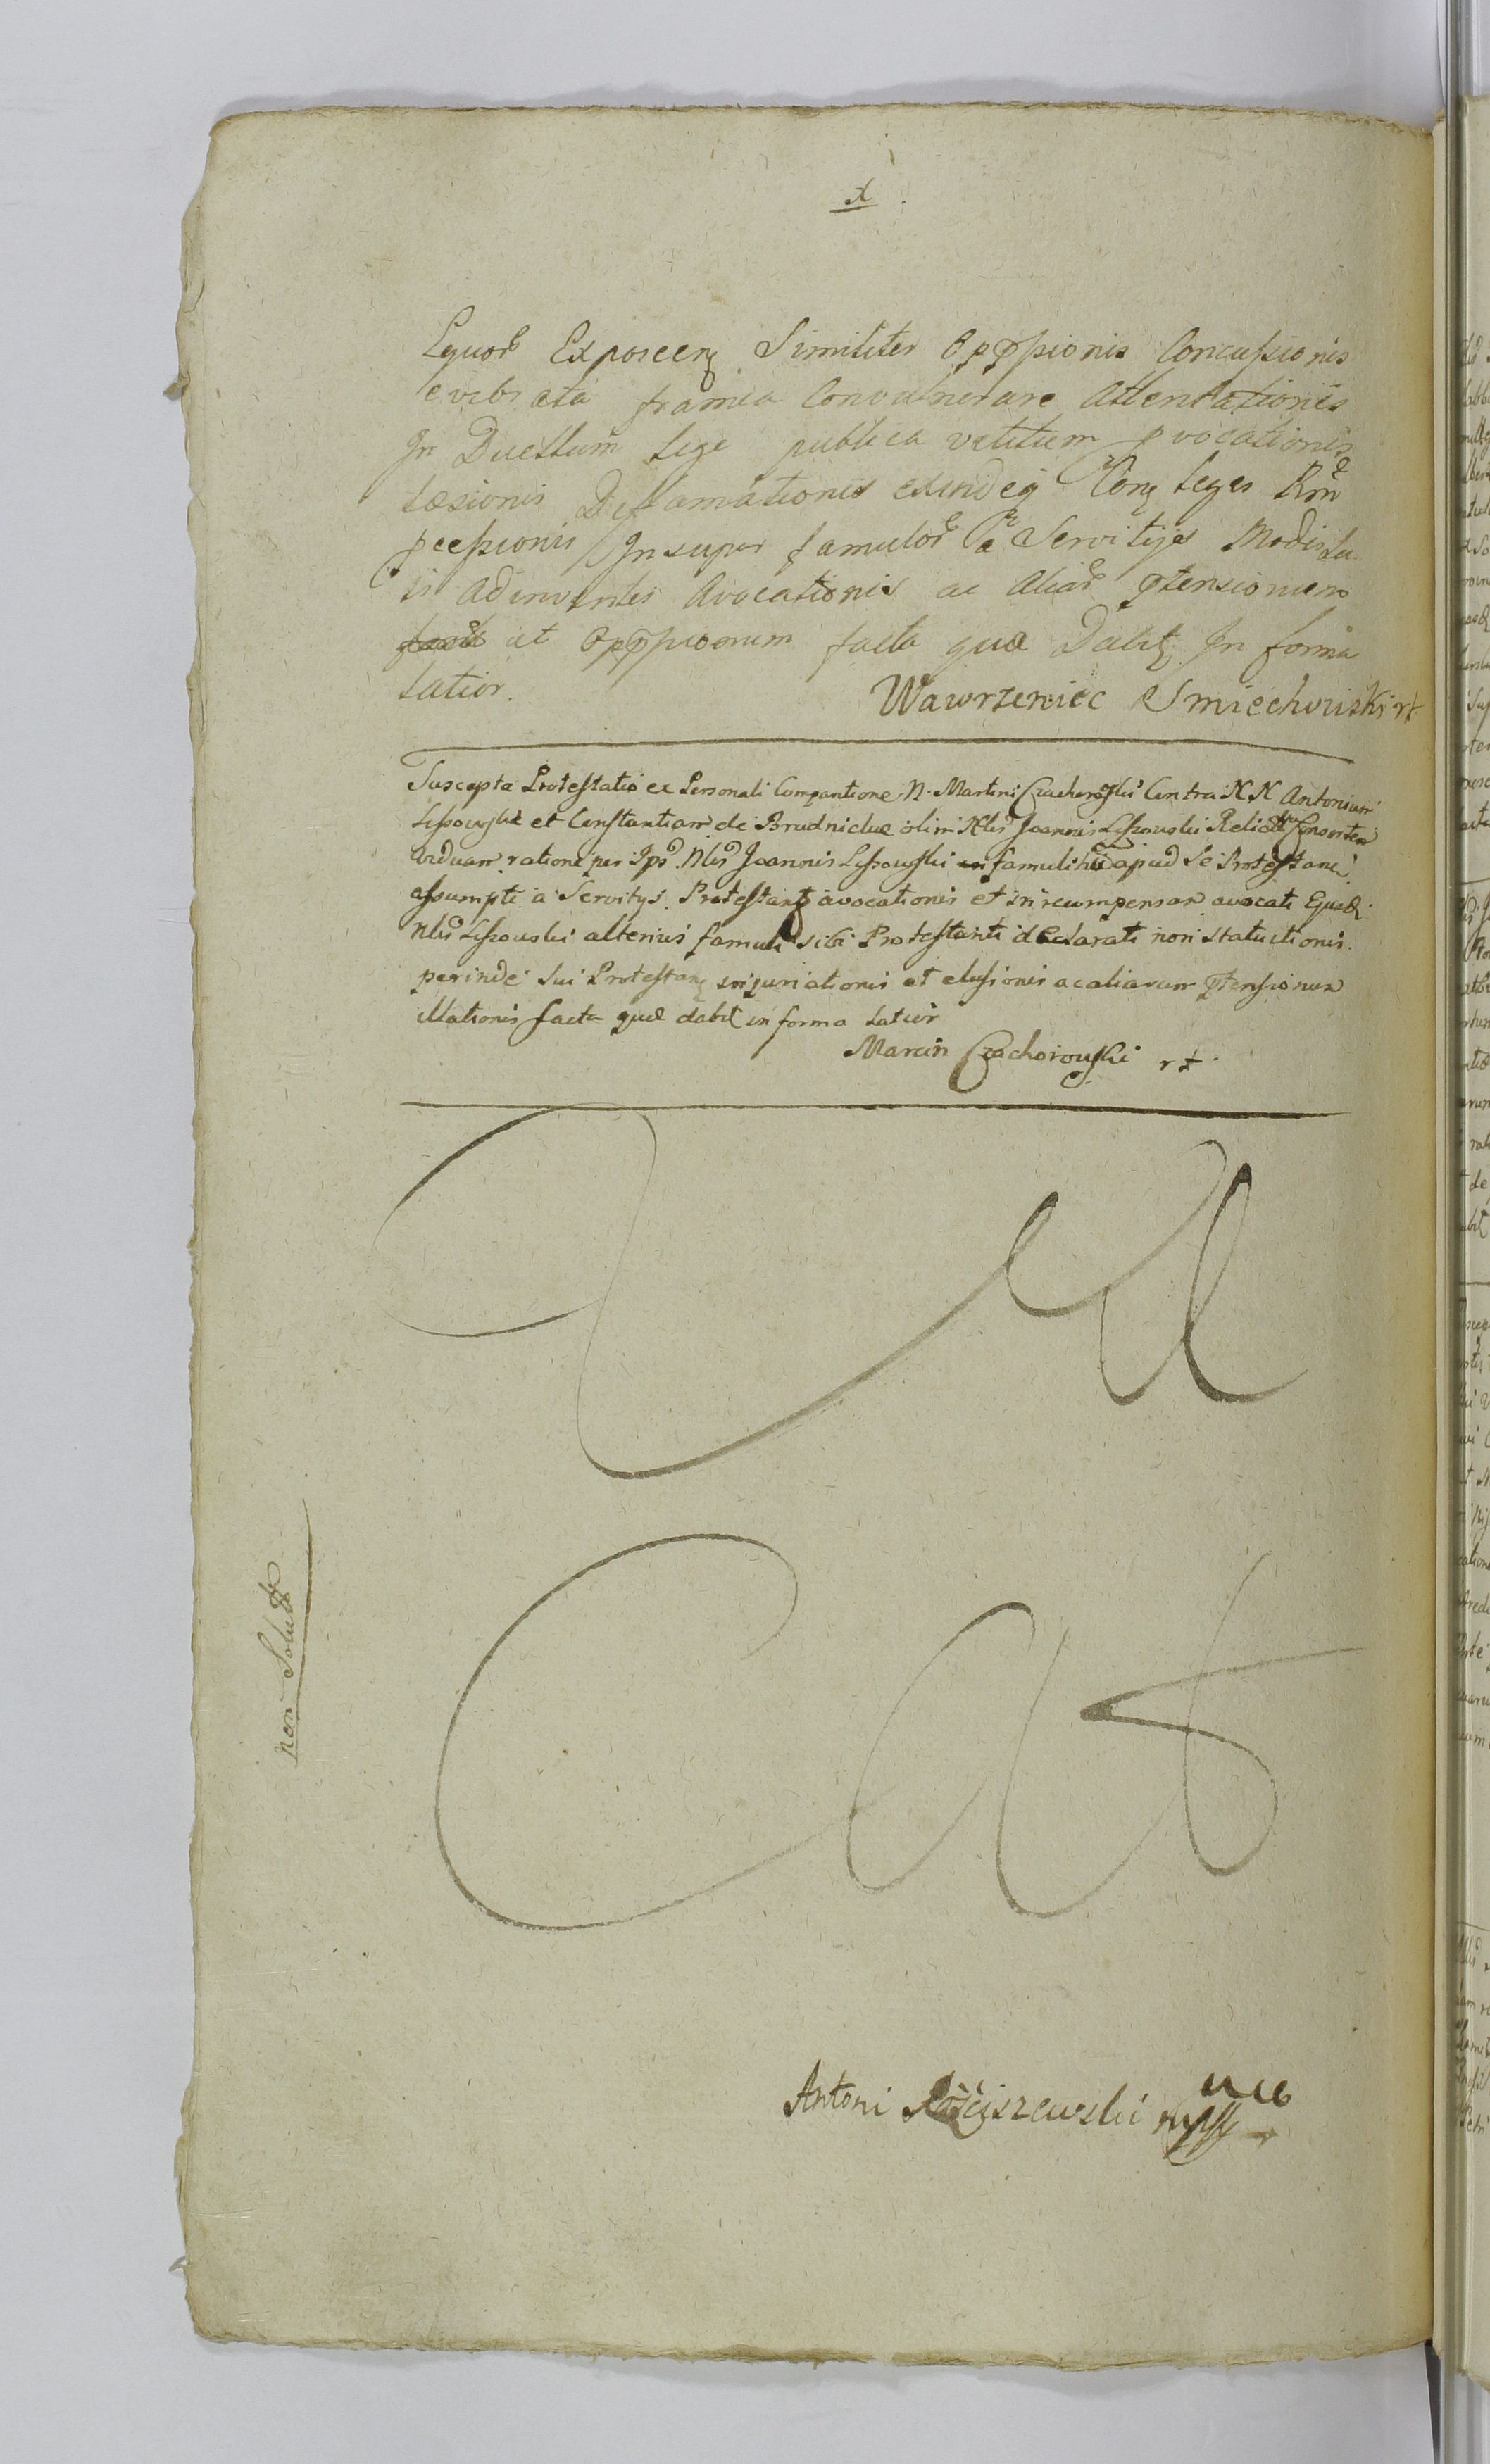 Equor Exposcen Similiter Opprssionis Concussionis
evibrata framea Convulnerare Attentationis
In Duellum lege publica vetitum provocationis
Laesionis Diffamationis exindeq Con leges Rni
Insuper famulor a Servitijs Modis
Adinventis Avocationis ac Aliar ptensionum
et facta quae Dabit In forma
latior.
Wawrzeniec Smiechowiski
Suscepta Protestatio ex Personali Comparitione N. Martini Czachorowski Contra NN Antonium
Lissowski et Constantiam de Brudnickie olim Nlis Joannis Lissowski Relictam Consortem
viduam ratione per Ips Nlis Joannis Lissowski famuli apud se Protestan
assumpti a Servitys Protestant avocationis et in recumpensam avocati Ejusd
Nlis Lissowski alterius famuli sibi Protestanti declarati non statuitionis
perinde sui Protestan injuriationis et elusionis ac aliarum ptensionum
illationis facta quae dabit in forma latior
Marcin Czachorowski
non Solut
Antoni Rościszewski